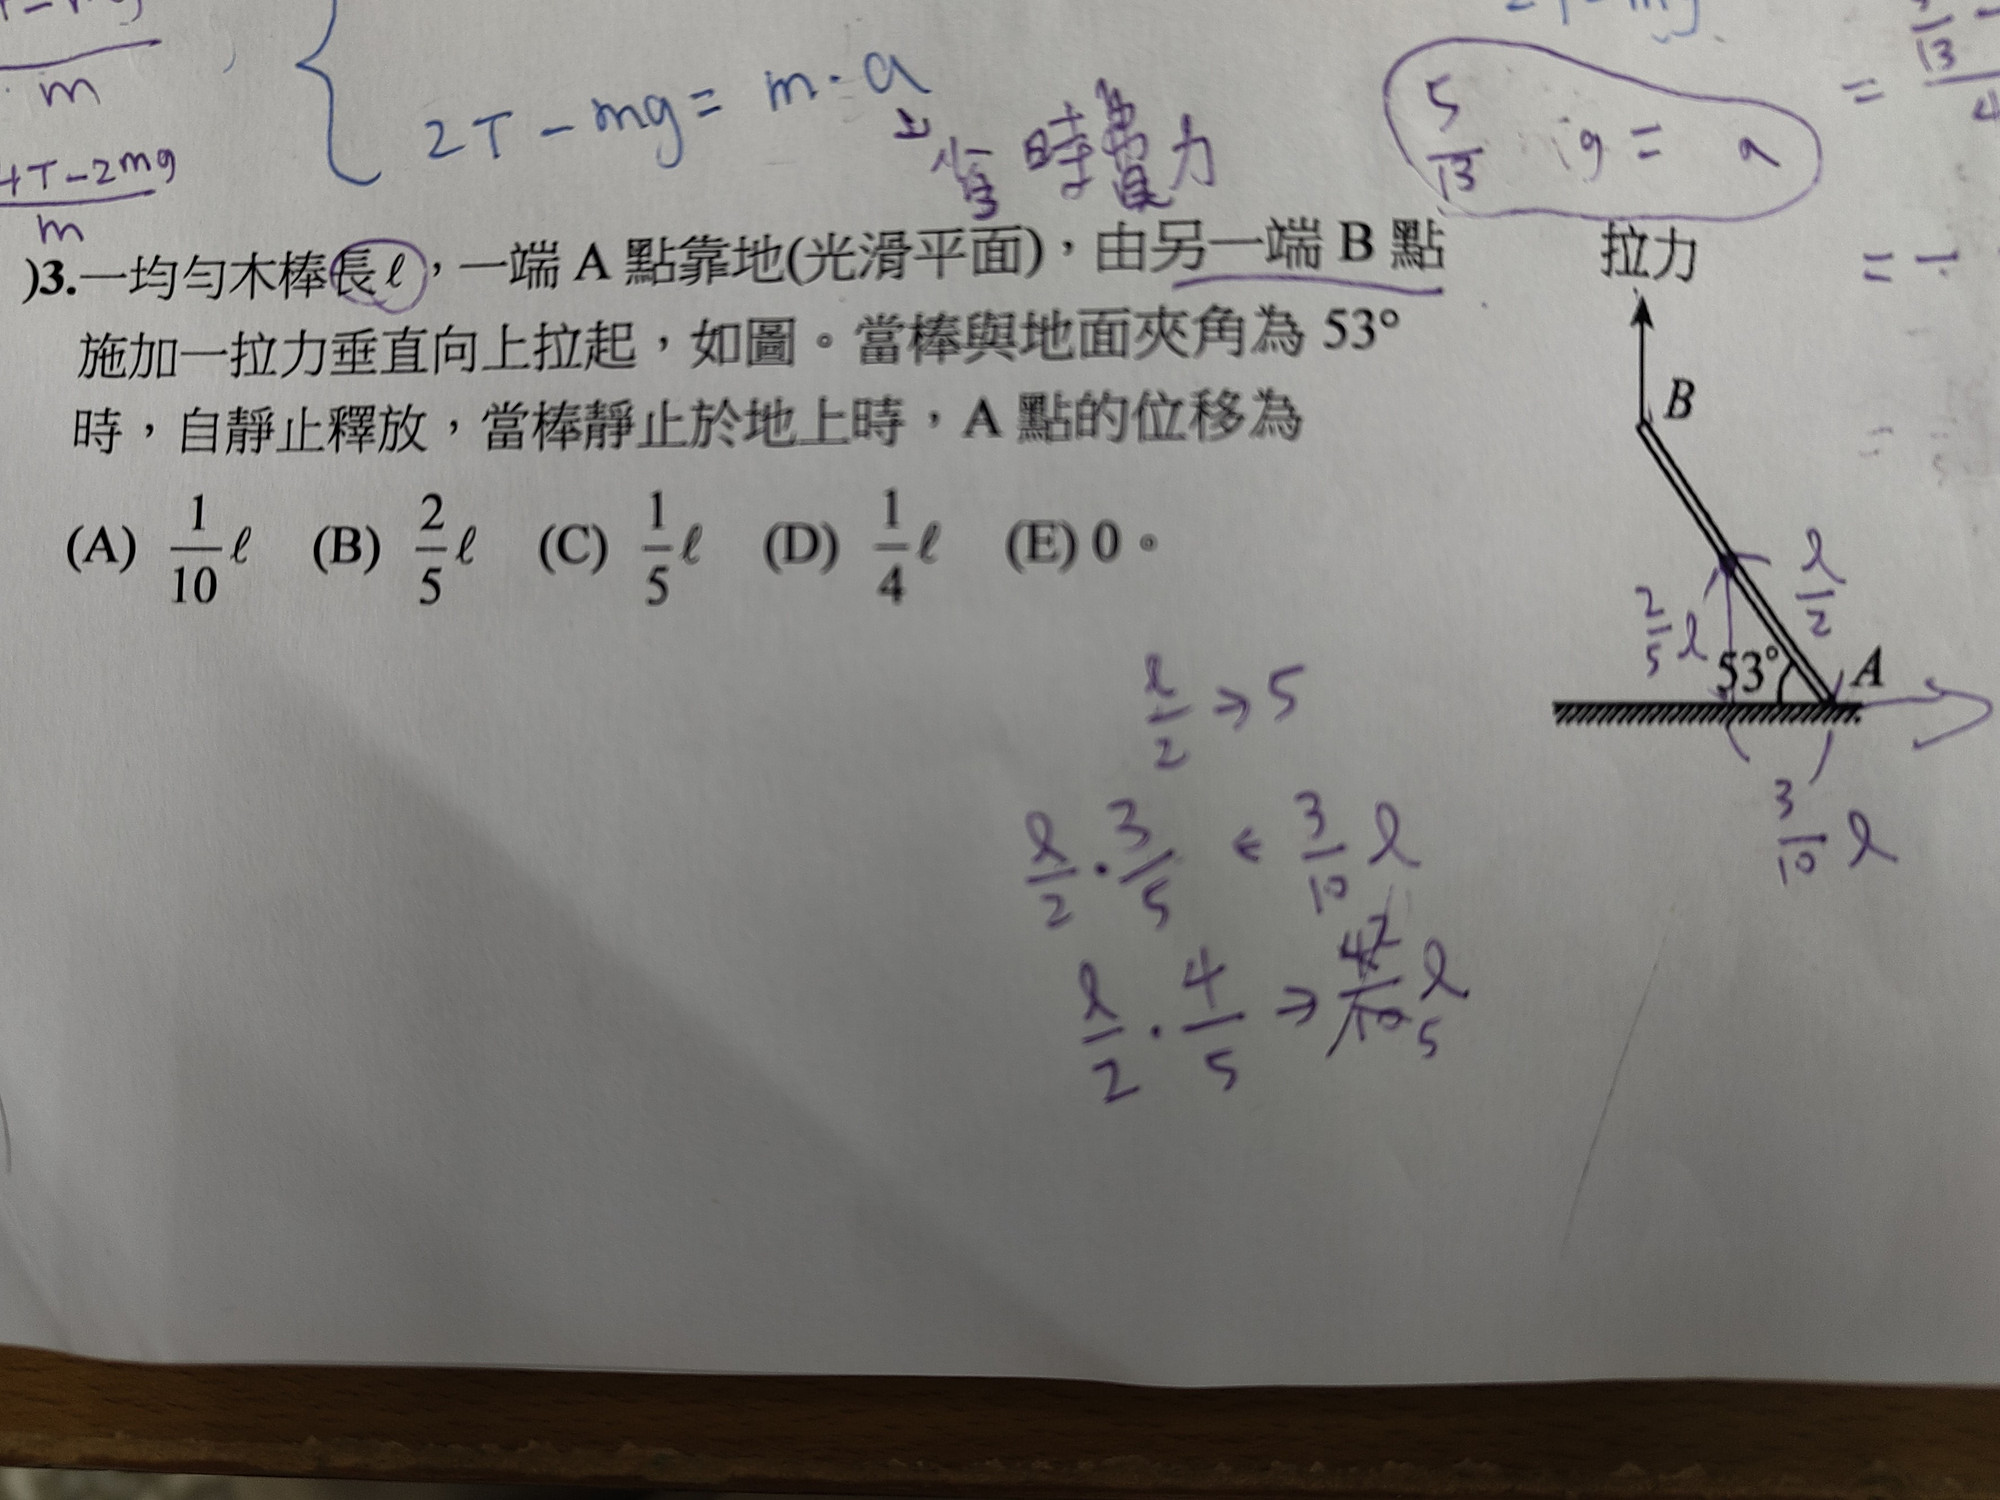 m
4T-2mg
m
2T-mg=m·a
時 力
5/13 g = a
)3.一均勻木棒長ℓ，一端 A 點靠地(光滑平面)，由另一端 B 點
施加一拉力垂直向上拉起，如圖。當棒與地面夾角為 53°
時，自靜止釋放，當棒靜止於地上時，A 點的位移為
(A) 1/10 ℓ (B) 2/5 ℓ (C) 1/5 ℓ (D) 1/4 ℓ (E) 0。
拉力
B
ℓ/2
2/5 ℓ
53°
A
3/10 ℓ
ℓ/2 → 5
ℓ/2 · 3/5 ← 3/10 ℓ
ℓ/2 · 4/5 → 4/10 2/5 ℓ